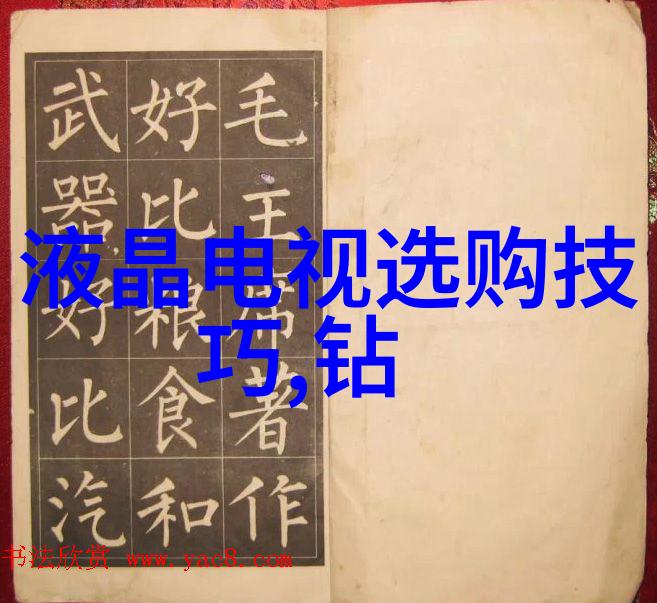 毛主席著作
好比粮食和
武器,好比汽
液晶电视选购技
巧,钻
书法欣赏 www.yac8.com